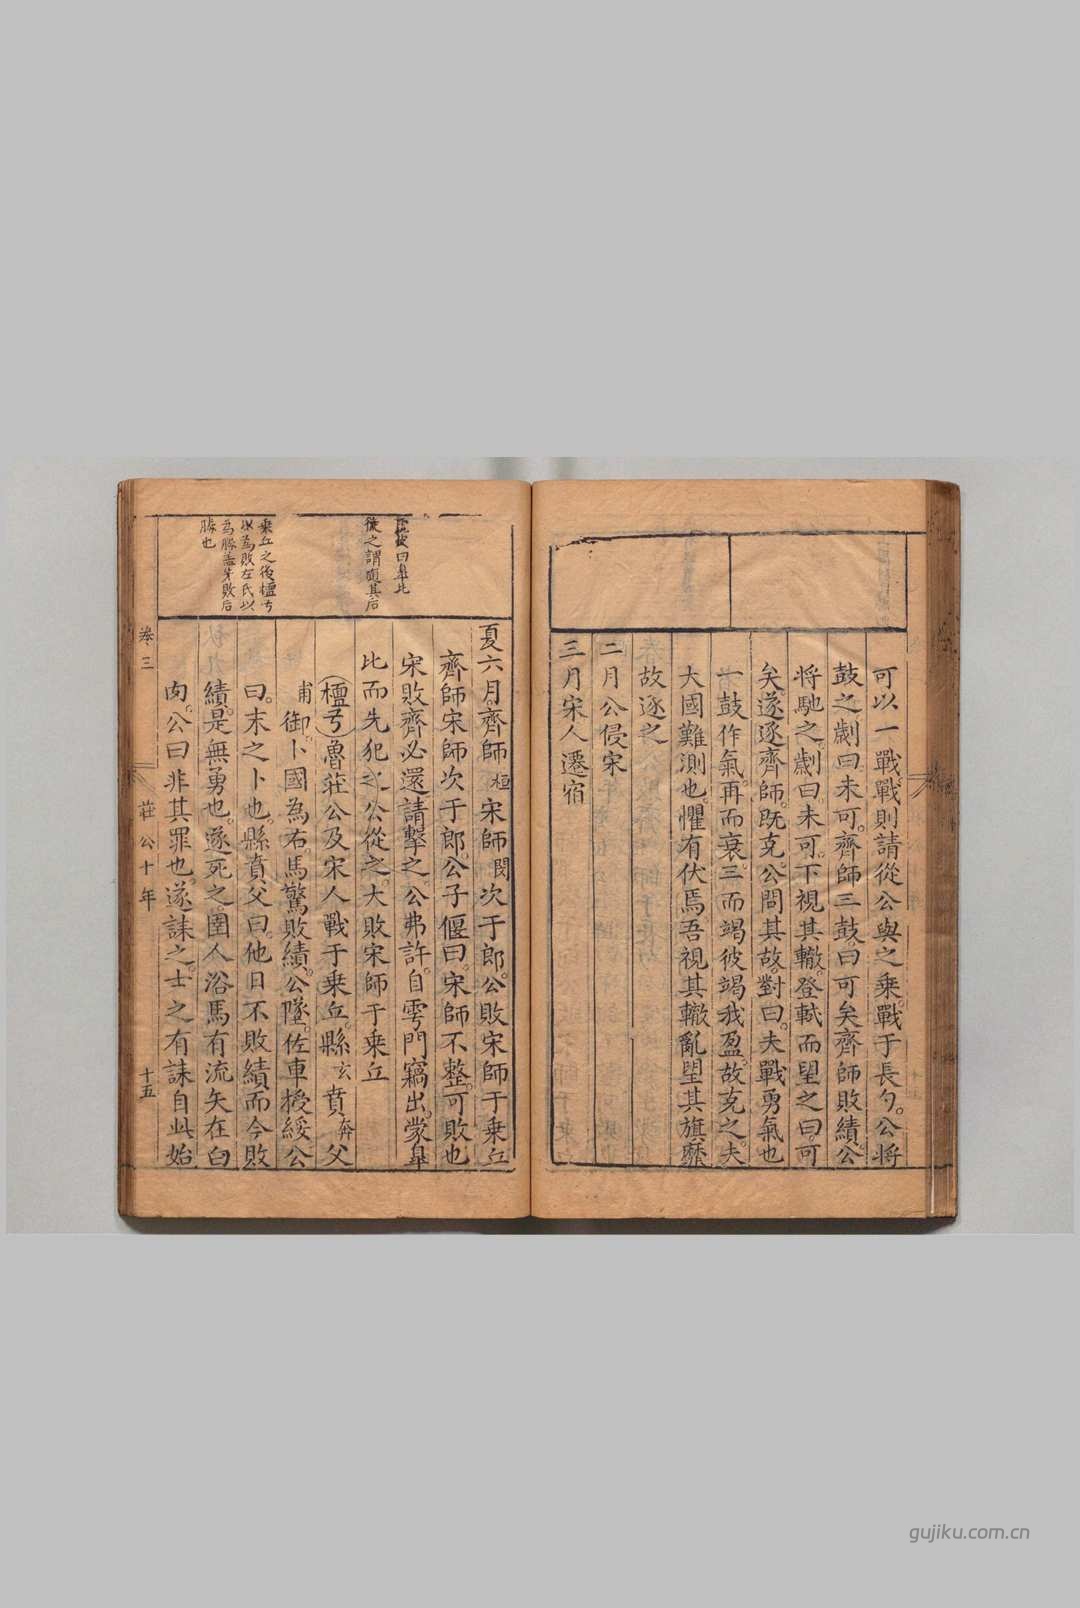 可以一戰戰則請從公與之乘戰于長勺公將
鼓之劌曰未可齊師三鼓曰可矣齊師敗績公
將馳之劌曰未可下視其轍登軾而望之曰可
矣遂逐齊師既克公問其故對曰夫戰勇氣也
一鼓作氣再而衰三而竭彼竭我盈故克之夫
大國難測也懼有伏焉吾視其轍亂望其旗靡
故逐之
二月公侵宋
三月宋人遷宿
夏六月齊師桓宋師閔次于郎公敗宋師于乘丘
齊師宋師次于郎公子偃曰宋師不整可敗也
宋敗齊必還請擊之公弗許自雩門竊出蒙皐
比而先犯之公從之大敗宋師于乘丘
檀弓魯莊公及宋人戰于乘丘縣玄賁奔父
甫御卜國為右馬驚敗績公隊佐車授綏公
曰末之卜也縣賁父曰他日不敗績而今敗
績是無勇也遂死之圉人浴馬有流矢在白
肉公曰非其罪也遂誄之士之有誄自此始
曰皐比
從之謂
其后
乘丘之役檀弓
以為敗左氏以
為勝盖先敗后
勝也
卷三
莊公十年
十五
gujiku.com.cn